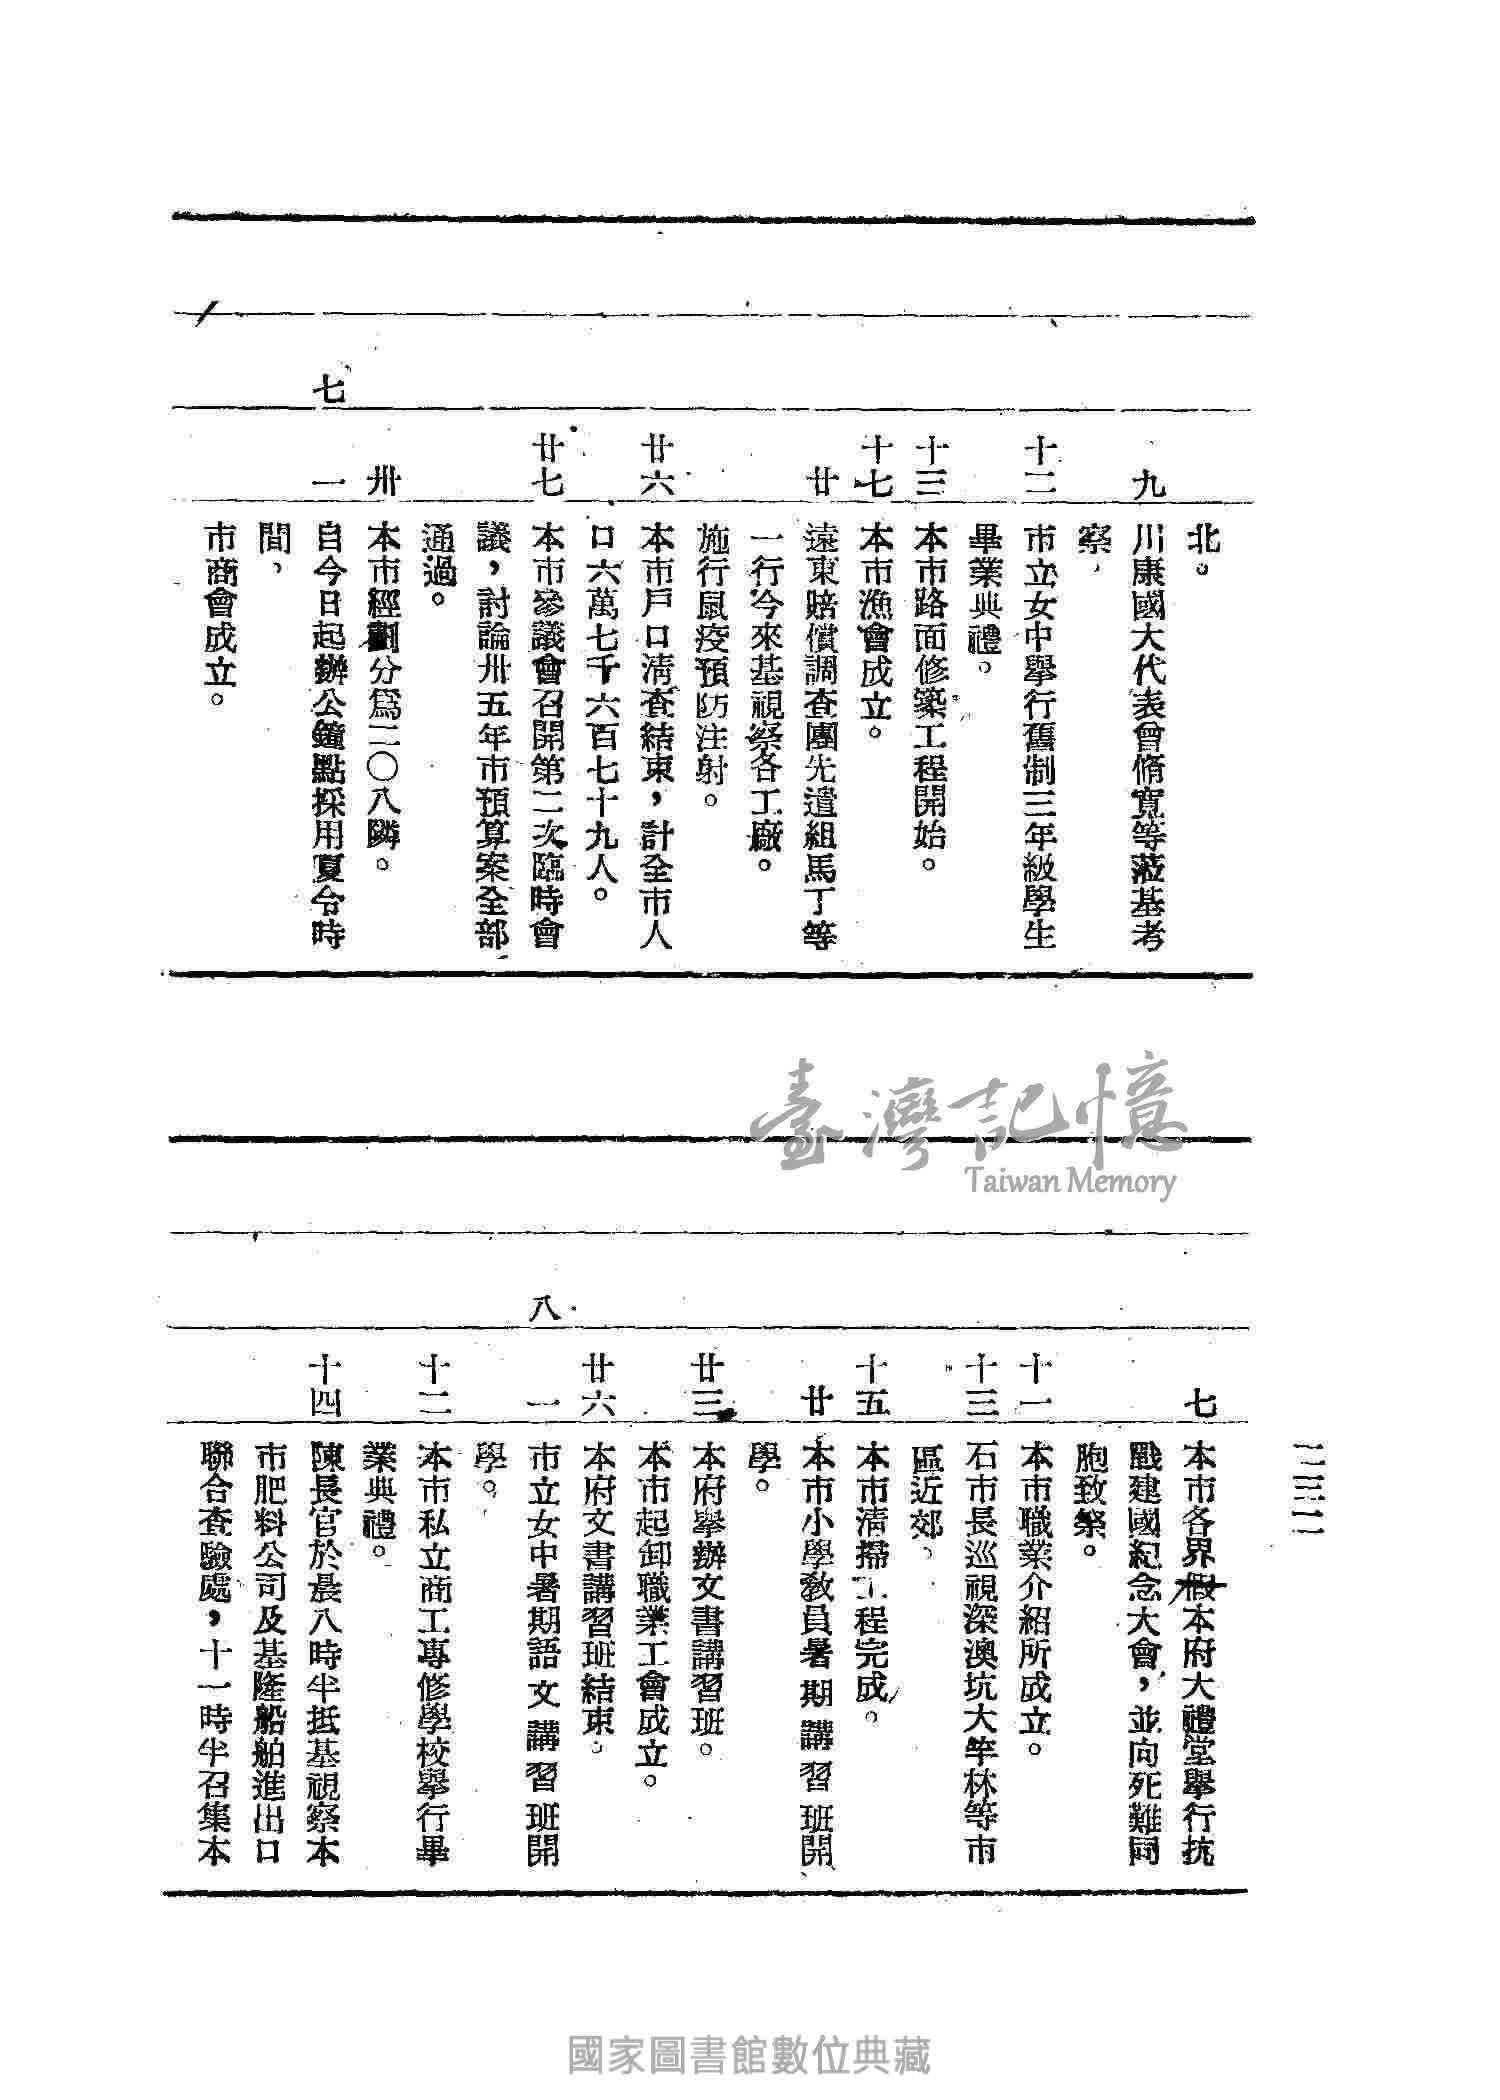 北。
九
川康國大代表曾脩寬等蒞基考
察、
十二
市立女中舉行舊制三年級學生
畢業典禮。
十三
本市路面修築工程開始。
十七
本市漁會成立。
廿
遠東賠償調查團先遣組馬丁等
一行今來基視察各工廠。
施行鼠疫預防注射。
廿六
本市戶口清查結束，計全市人
口六萬七千六百七十九人。
廿七
本市參議會召開第二次臨時會
議，討論卅五年市預算案全部
通過。
卅
本市經劃分爲二〇八隣。
七
一
自今日起辦公鐘點採用夏令時
間、
市商會成立。
二三二
七
本市各界假本府大禮堂舉行抗
戰建國紀念大會，並向死難同
胞致祭。
十一
本市職業介紹所成立。
十三
石市長巡視深澳坑大竿林等市
區近郊、
十五
本市清掃工程完成。
廿
本市小學教員暑期講習班開
學。
廿三
本府舉辦文書講習班。
本市起卸職業工會成立。
廿六
本府文書講習班結束。
八
一
市立女中暑期語文講習班開
學。
十二
本市私立商工專修學校舉行畢
業典禮。
十四
陳長官於晨八時半抵基視察本
市肥料公司及基隆船舶進出口
聯合查驗處，十一時半召集本
臺灣記憶
Taiwan Memory
國家圖書館數位典藏